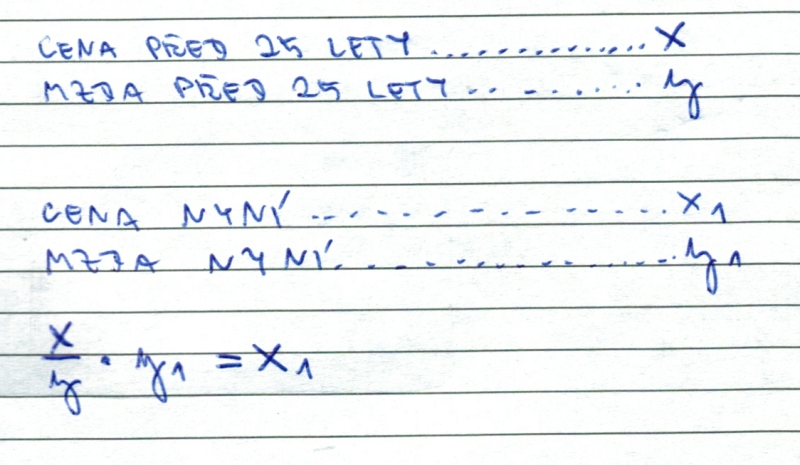 CENA PŘED 25 LETY .............. x
MZDA PŘED 25 LETY .. - ....... y
CENA NYNÍ ............... x₁
MZDA NYNÍ ............... y₁
x/y · y₁ = x₁